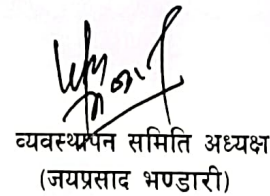 व्यवस्थापन समिति अध्यक्ष
(जयप्रसाद भण्डारी)